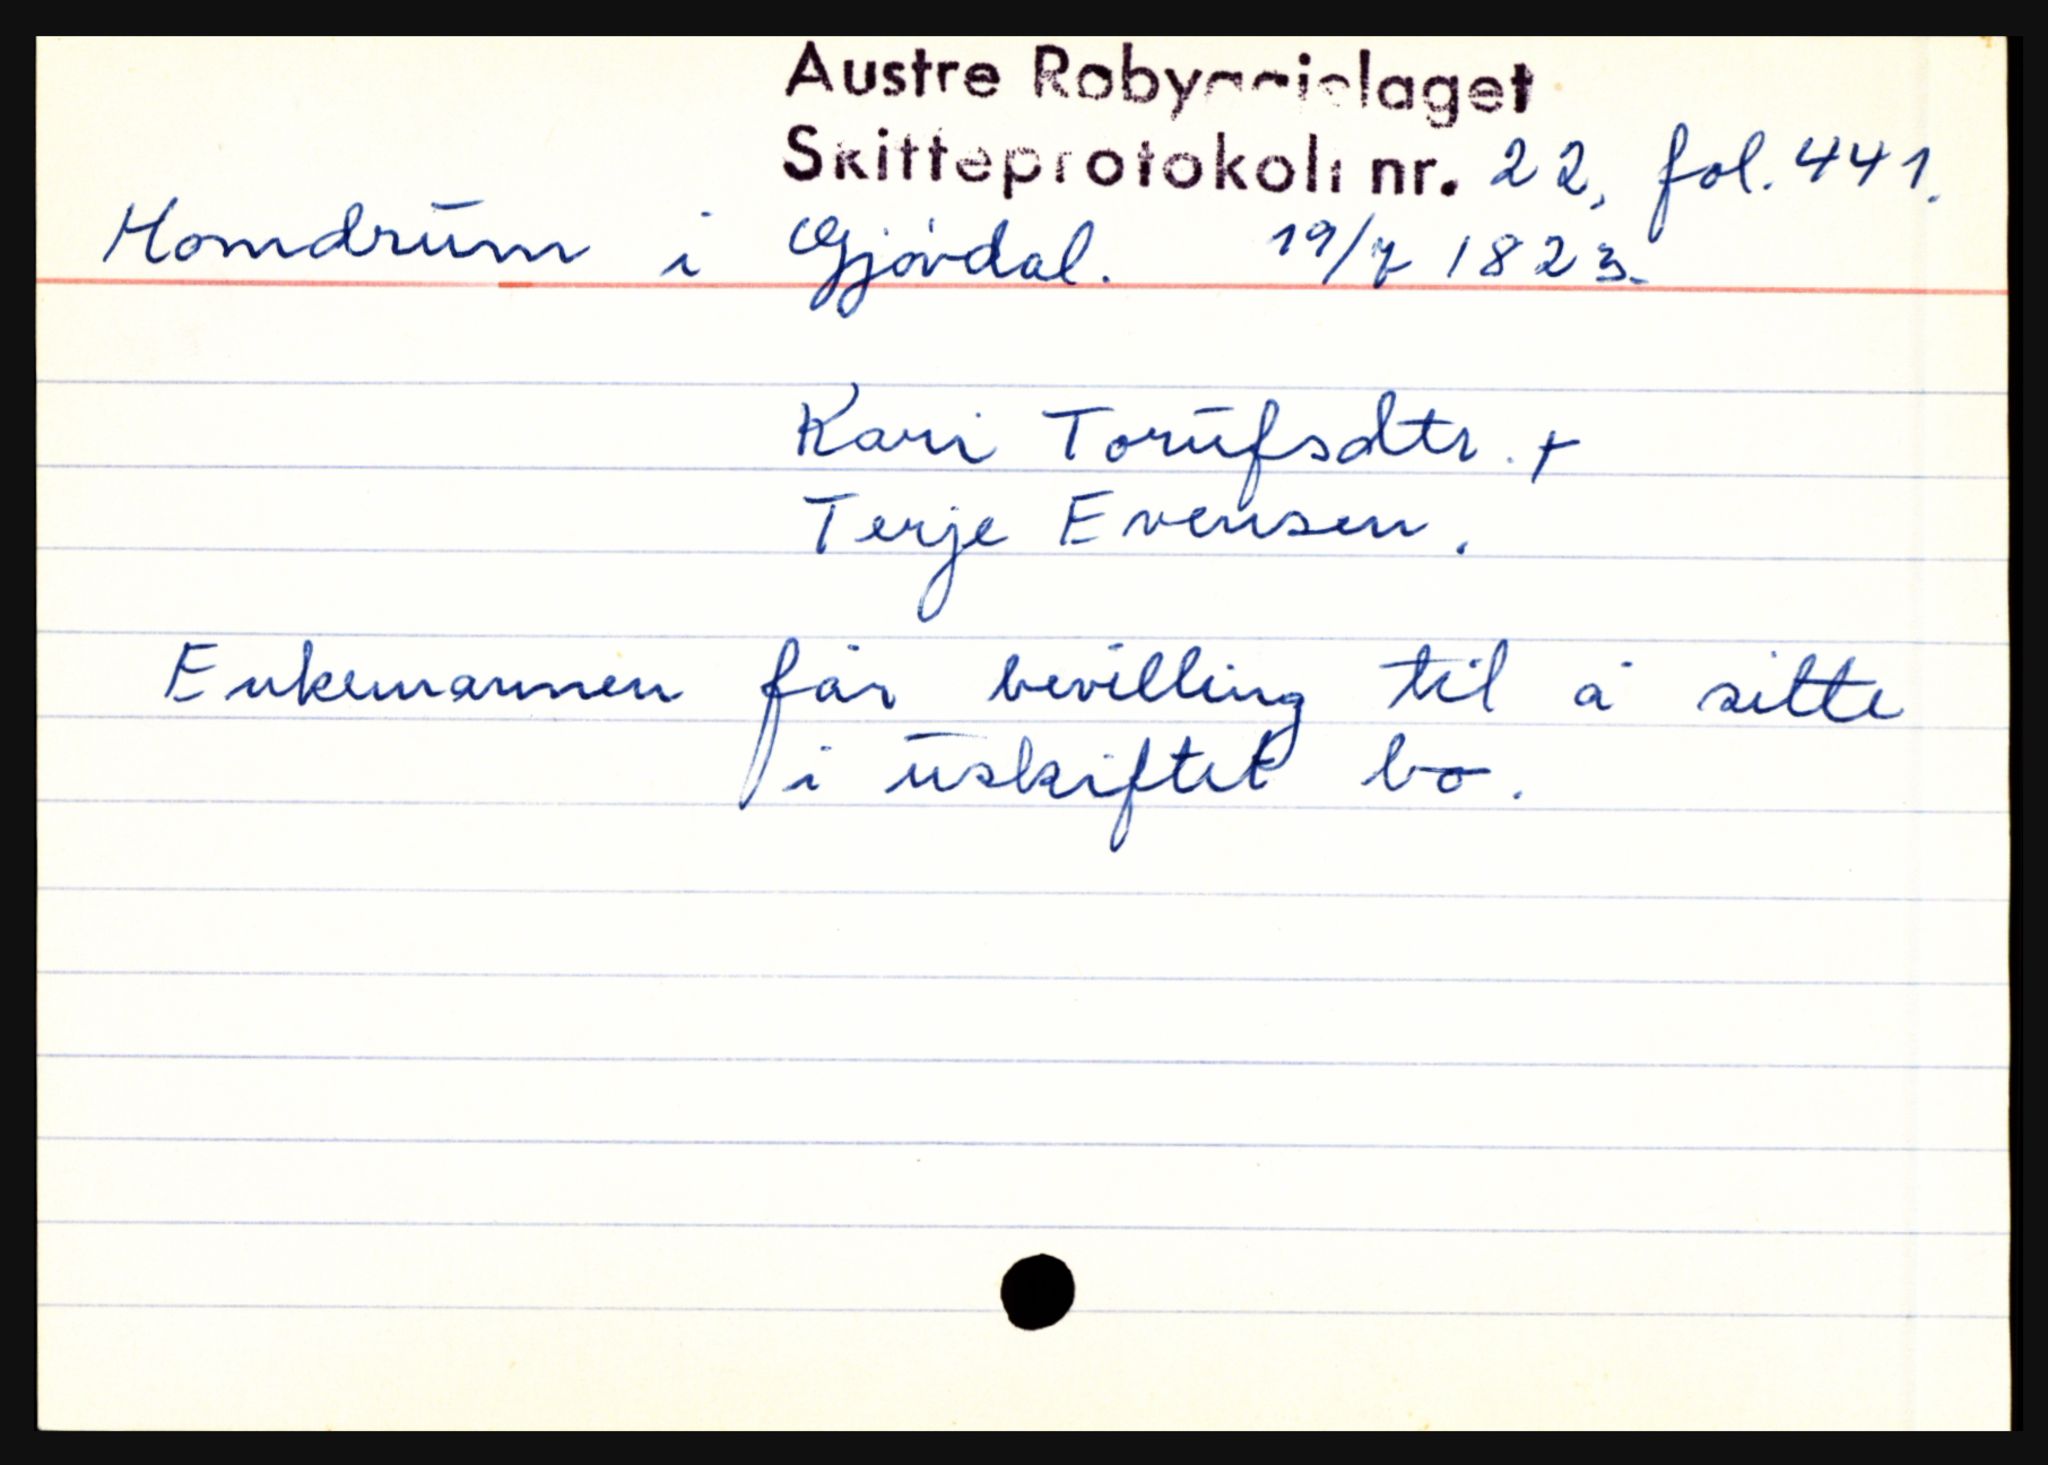 Austre Robyggjelaget
Skifteprotokoll nr. 22, fol. 441.
Homdrum i Gjøvdal. 19/7 1823.
Kari Torufsdtr. +
Terje Evensen.
Enkemannen får bevilling til å sitte
i uskiftet bo.